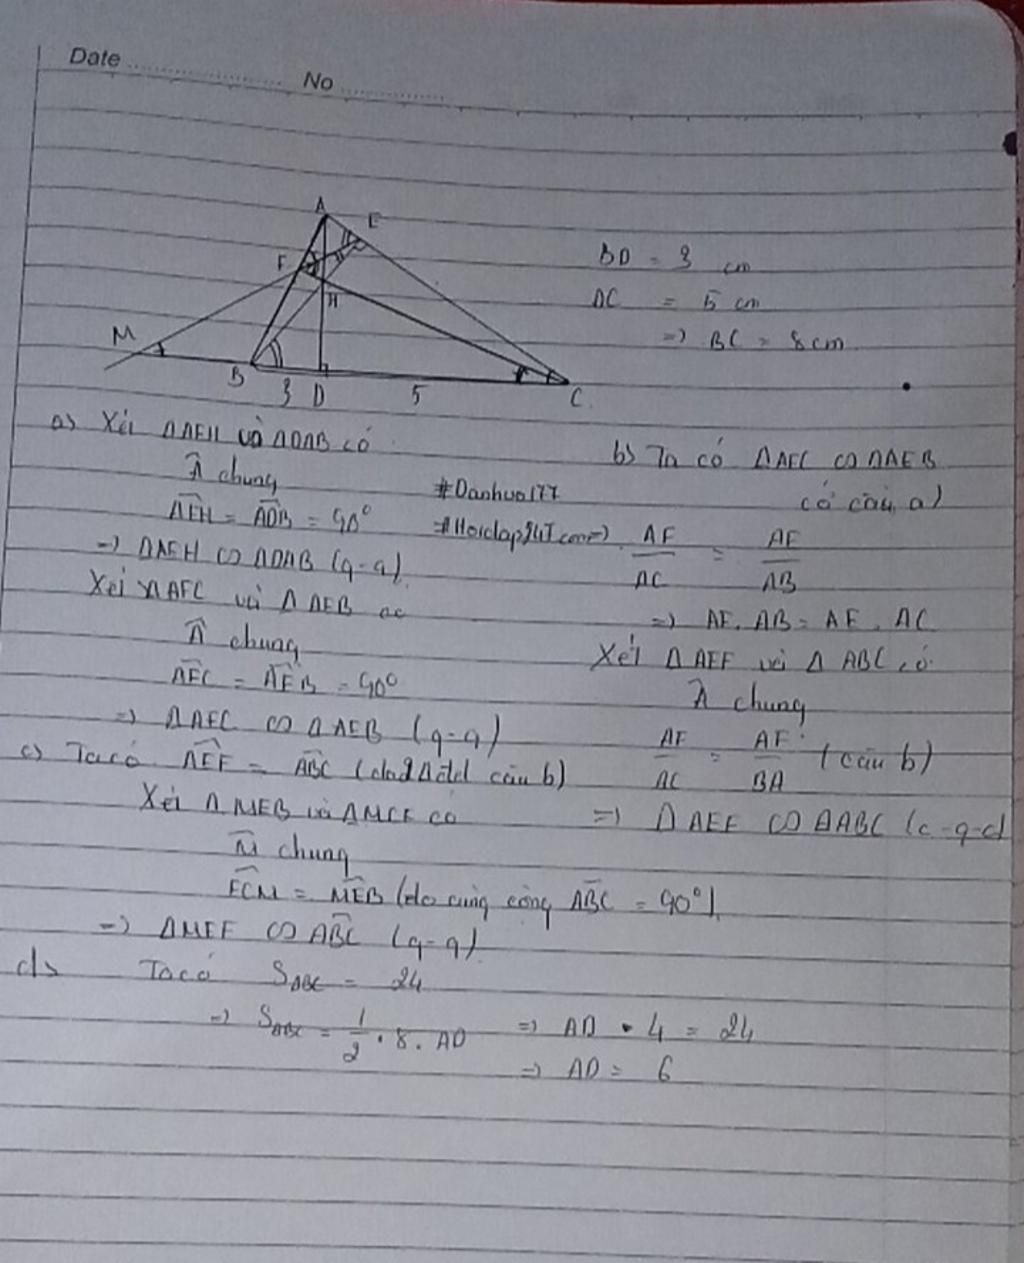 Date
No
A
E
F
H
M
B
3
D
5
C
BD = 3 cm
DC = 5 cm
=> BC = 8cm
a) Xét ΔAEH và ΔDAB có
Â chung
AEH = ADB = 90°
=> ΔAEH ∽ ΔDAB (g-g)
Xét ΔAFC và ΔAEB có
Â chung
AFC = AEB = 90°
=> ΔAFC ∽ ΔAEB (g-g)
b) Ta có ΔAFC ∽ ΔAEB
có câu a)
#Danhua177
=> AF/AC = AE/AB
=> AF. AB = AE. AC
Xét ΔAEF và ΔABC có
Â chung
AF/AC = AE/BA (câu b)
=> ΔAEF ∽ ΔABC (c-g-c)
c) Ta có AEF = ABC (câu b)
Xét ΔMEB và ΔMCF có
M chung
FCM = MEB (do cùng cộng ABC = 90°)
=> ΔMEF ∽ ABC (g-g)
d) Ta có S ABC = 24
=> S ABC = 1/2 . 8. AD => AD . 4 = 24
=> AD = 6